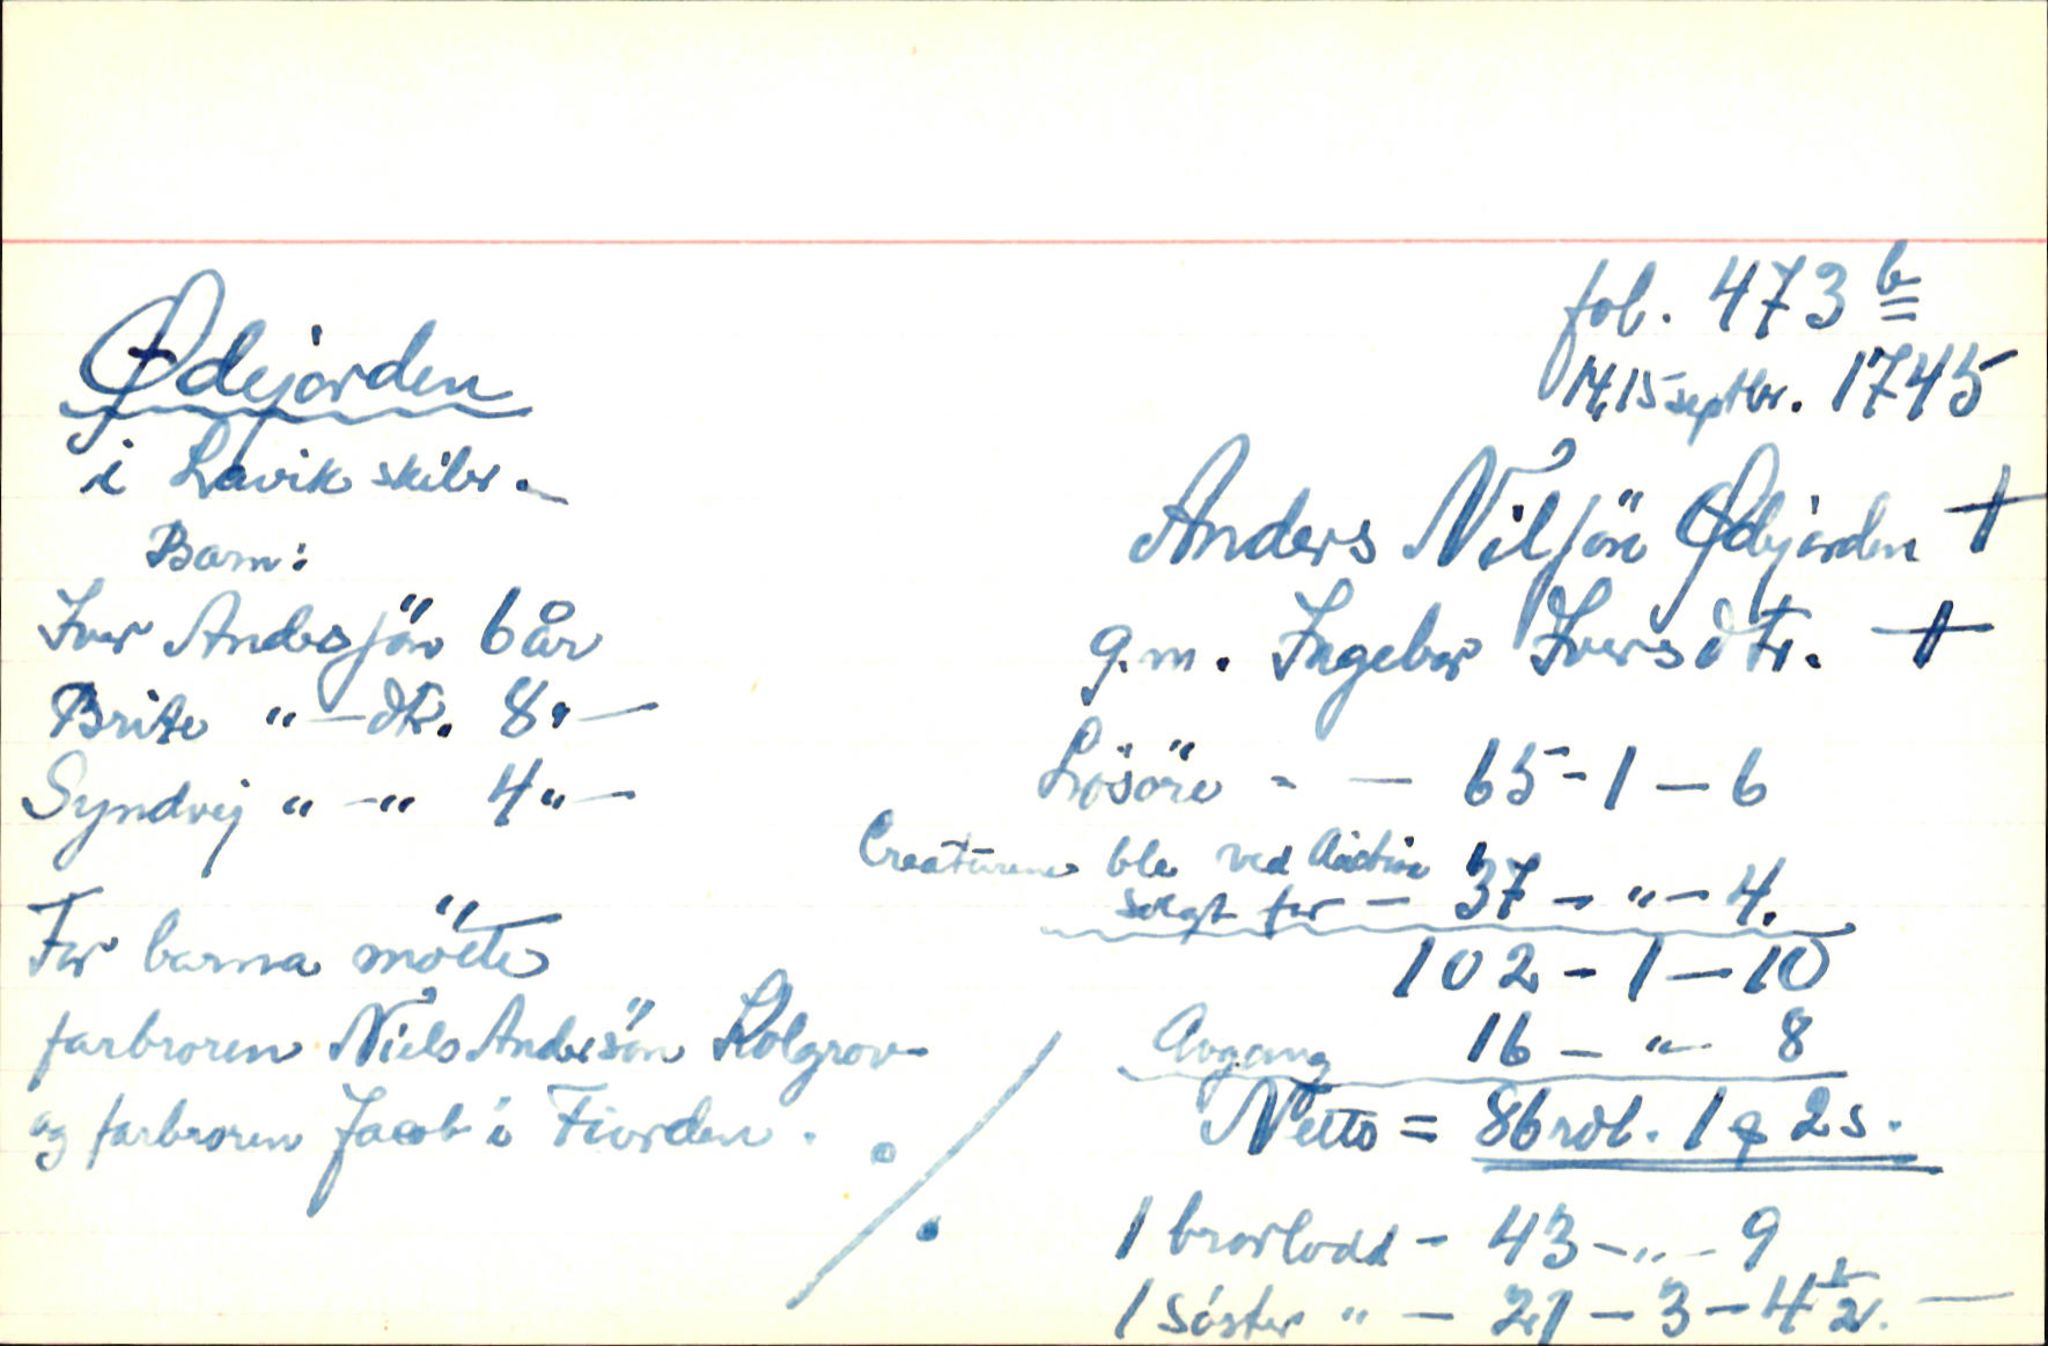 fol. 473 b
14, 15 septbr. 1745
Ødejorden
i Lavik skibr.
Barn:
Iver Andersjön 6 år
Brite " — dtr. 8 " —
Syndvej " — " 4 " —
For barna mötte
farbroren Niels Andersön Kolgrov
og farbroren Jacob i Fiorden.
Anders Niljön Ødejorden †
g.m. Ingebor Iversdtr. †
Lösöre - — 65 - 1 — 6
Creaturene ble ved Auction
solgt for — 37 — " — 4.
102 - 1 — 10
Avgang 16 — " — 8
Netto = 86 rdl. 1 q 2 s.
1 brorlodd - 43 - " - 9
1 söster " — 21 — 3 — 4 1/2. —